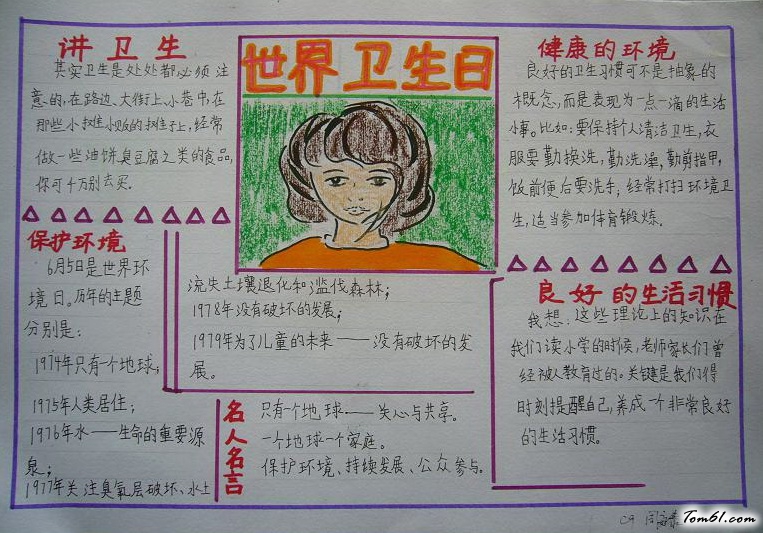 世界卫生日
讲卫生
其实卫生是处处都必须注
意的,在路边、大街上、小巷中,在
那些小摊小贩的摊子上,经常
做一些油饼臭豆腐之类的食品,
你可千万别去买.
保护环境
6月5日是世界环
境日。历年的主题
分别是:
1974年只有一个地球;
1975年人类居住;
1976年水——生命的重要源
泉;
1977年关注臭氧层破坏、水土
流失土壤退化和滥伐森林;
1978年没有破坏的发展;
1979年为了儿童的未来——没有破坏的发
展。
名人名言
只有一个地球——关心与共享。
一个地球一个家庭。
保护环境、持续发展、公众参与。
健康的环境
良好的卫生习惯可不是抽象的
概念,而是表现为一点一滴的生活
小事。比如:要保持个人清洁卫生,衣
服要勤换洗,勤洗澡,勤剪指甲,
饭前便后要洗手,经常打扫环境卫
生,适当参加体育锻炼。
良好的生活习惯
我想,这些理论上的知识在
我们读小学的时候,老师家长们曾
经被人教育过的。关键是我们得
时刻提醒自己,养成一个非常良好
的生活习惯。
Tom61.com